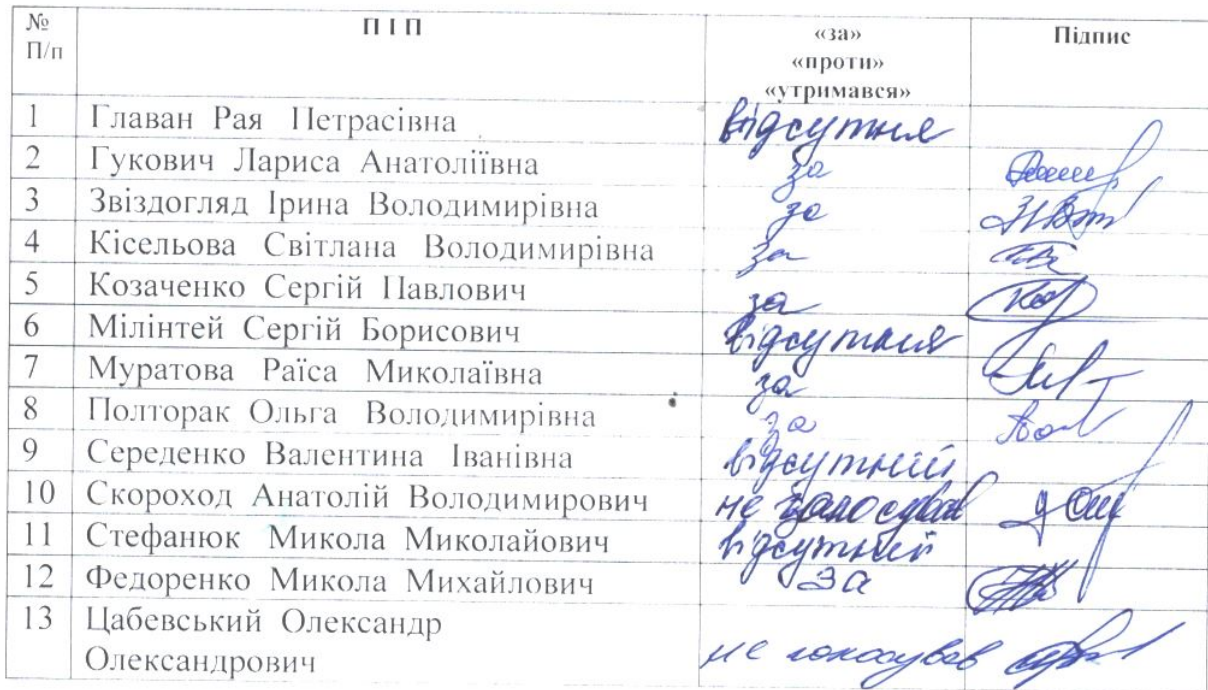 № П/п П І П «за» «проти» «утримався» Підпис
1 Главан Рая Петрасівна відсутня
2 Гукович Лариса Анатоліївна за
3 Звіздогляд Ірина Володимирівна за
4 Кісельова Світлана Володимирівна за
5 Козаченко Сергій Павлович за
6 Мілінтей Сергій Борисович відсутния
7 Муратова Раїса Миколаївна за
8 Полторак Ольга Володимирівна за
9 Середенко Валентина Іванівна відсутний
10 Скороход Анатолій Володимирович не голосував
11 Стефанюк Микола Миколайович відсутний
12 Федоренко Микола Михайлович за
13 Цабевський Олександр
Олександрович не голосував